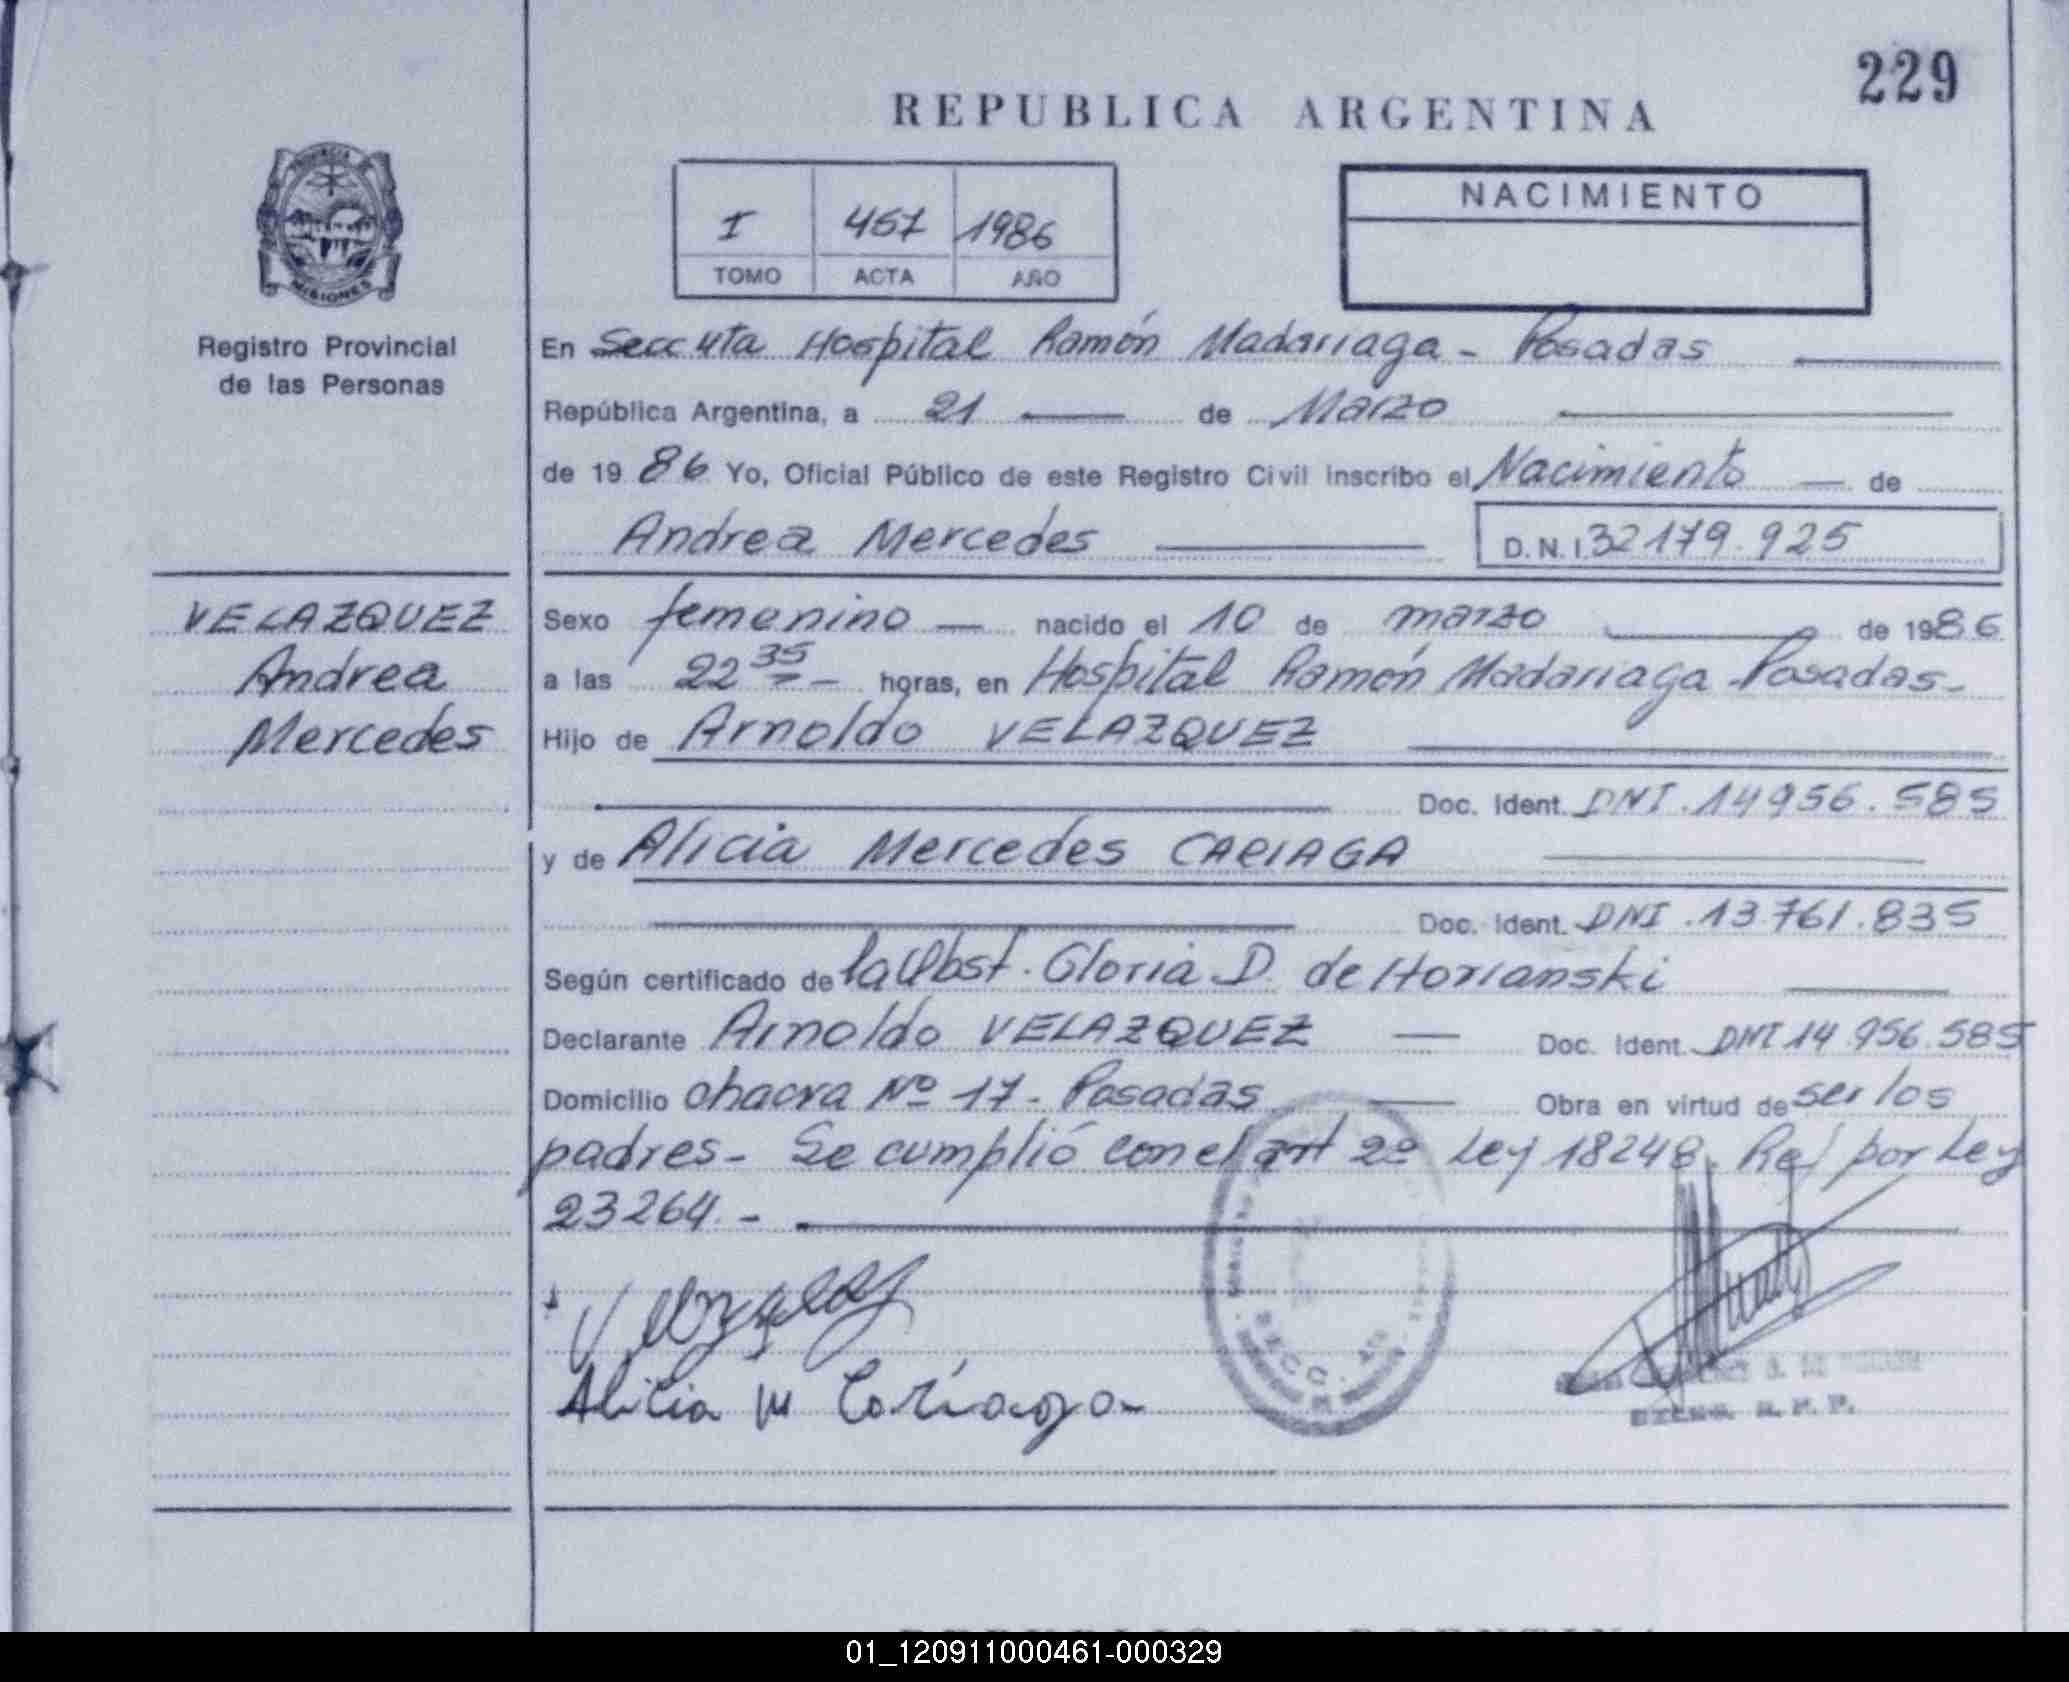 229
REPUBLICA ARGENTINA
PROVINCIA DE
MISIONES
Registro Provincial
de las Personas
I 457 1986
TOMO ACTA AÑO
NACIMIENTO
En Secc 4ta Hospital Ramón Madariaga - Posadas
República Argentina, a 21 de Marzo
de 1986 Yo, Oficial Público de este Registro Civil inscribo el Nacimiento de
Andrea Mercedes D.N.I. 32179.925
VELAZQUEZ
Andrea
Mercedes
Sexo femenino nacido el 10 de marzo de 1986
a las 22 35 horas, en Hospital Ramón Madariaga - Posadas -
Hijo de Arnoldo VELAZQUEZ
Doc. Ident. DNI. 14956.585
y de Alicia Mercedes CARIAGA
Doc. Ident. DNI. 13.761.835
Según certificado de la Obst. Gloria D. de Horianski
Declarante Arnoldo VELAZQUEZ Doc. Ident. DNI 14 956.585
Domicilio chacra Nº 17 - Posadas Obra en virtud de ser los
padres - Se cumplió con el art 2º Ley 18248. Ref por Ley
23264. -
Alicia M Cariaga
SECC. 4ta
R. P. P.
REPUBLICA ARGENTINA
01_120911000461-000329